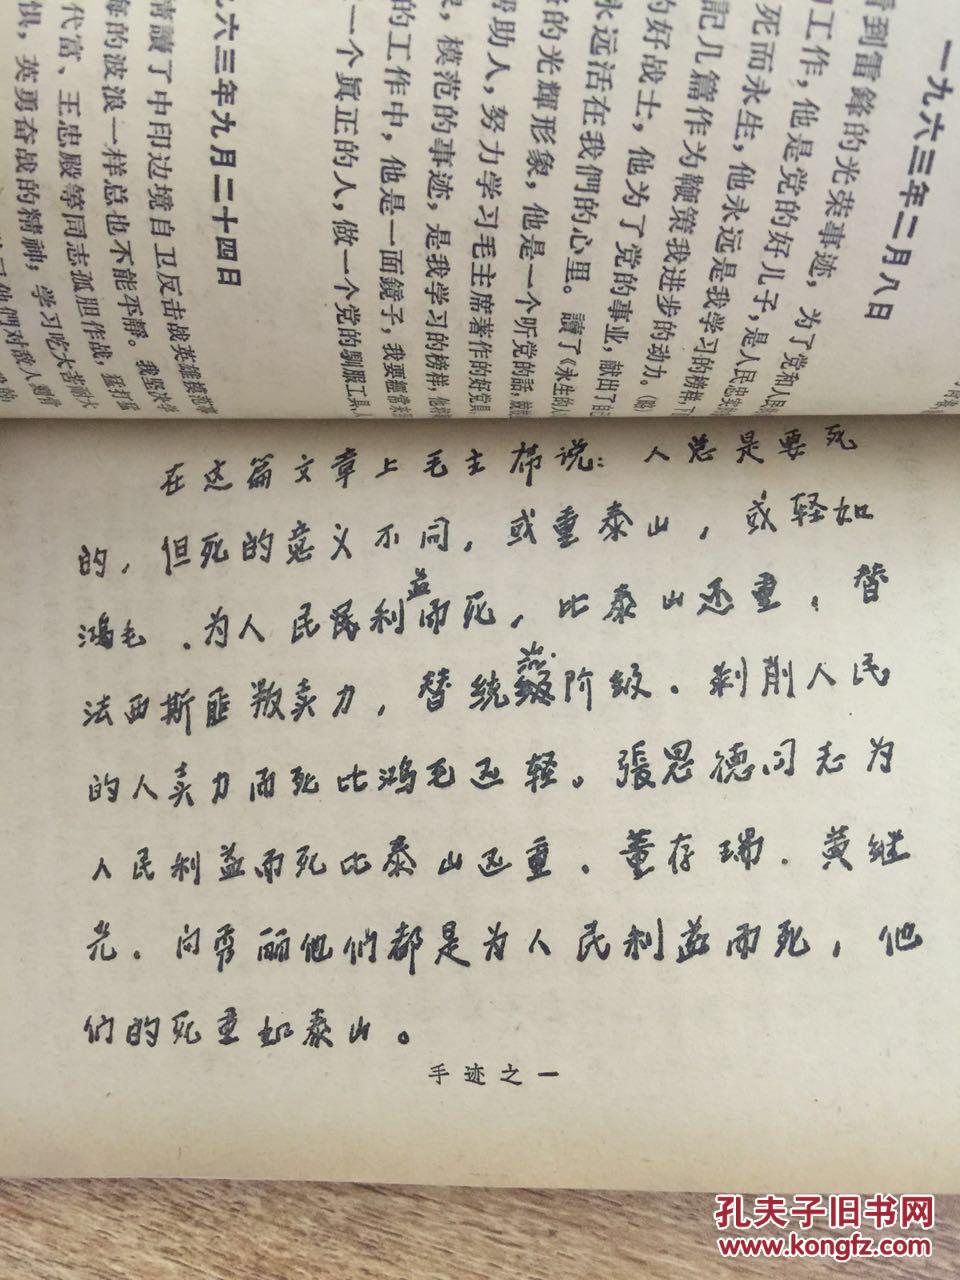 一九六三年二月八日
看到雷鋒的光荣事迹，为了党和人民
工作，他是党的好儿子，是人民忠实
死而永生，他永远是我学习的榜样，下
記几篇作为鞭策我进步的动力。（略
的好战士，他为了党的事业，献出了自己
永远活在我們的心里。讀了《永生的人
的光輝形象，他是一个听党的話，
帮助人，努力学习毛主席著作的好党員
，模范的事迹，是我学习的榜样，他
的工作中，他是一面鏡子，我要經常来
一个真正的人，做一个党的馴服工具
六三年九月二十四日
情讀了中印边境自卫反击战英雄模范事
海的波浪一样总也不能平静。我坚决学
代富、王忠殿等同志孤胆作战，猛打
惧，英勇奋战的精神，学习吃大苦耐大
他們对敌人
在这篇文章上毛主席说：人总是要死
的，但死的意义不同，或重泰山，或轻如
鸿毛．为人民民利益而死，比泰山还重，替
法西斯匪叛卖力，替统治阶级．剥削人民
的人卖力而死比鸿毛还轻。張思德同志为
人民利益而死比泰山还重．董存瑞．黄继
光．向秀丽他们都是为人民利益而死，他
们的死重如泰山。
手迹之一
孔夫子旧书网
www.kongfz.com